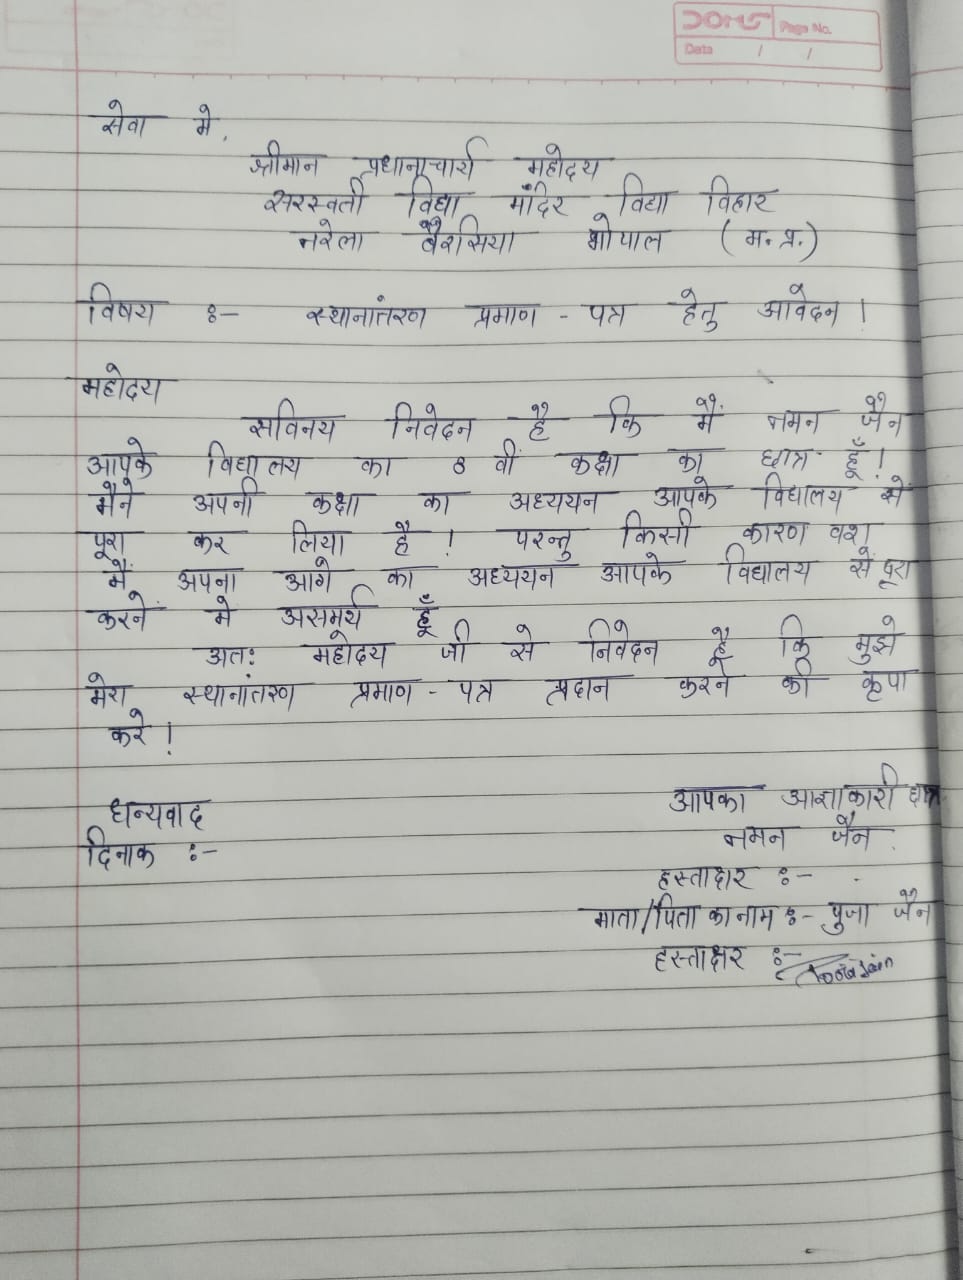 DOMS
Page No.
Date / /
सेवा मे,
श्रीमान प्रधानाचार्य महोदय
सरस्वती विद्या मंदिर विद्या विहार
नरेला बैरसिया भोपाल (म. प्र.)
विषय :- स्थानांतरण प्रमाण - पत्र हेतु आवेदन।
महोदय
सविनय निवेदन है कि मैं नमन जैन
आपके विद्यालय का 8 वीं कक्षा का छात्र हूँ!
मैने अपनी कक्षा का अध्ययन आपके विद्यालय से
पूरा कर लिया है ! परन्तु किसी कारण वश
मैं अपना आगे का अध्ययन आपके विद्यालय से पूरा
करने मे असमर्थ हूँ
अतः महोदय जी से निवेदन है कि मुझे
मेरा स्थानांतरण प्रमाण - पत्र प्रदान करने की कृपा
करे !
धन्यवाद
दिनाक :-
आपका आज्ञाकारी छात्र
नमन जैन
हस्ताक्षर :-
माता/पिता का नाम :- पुजा जैन
हस्ताक्षर :- Pooja Jain